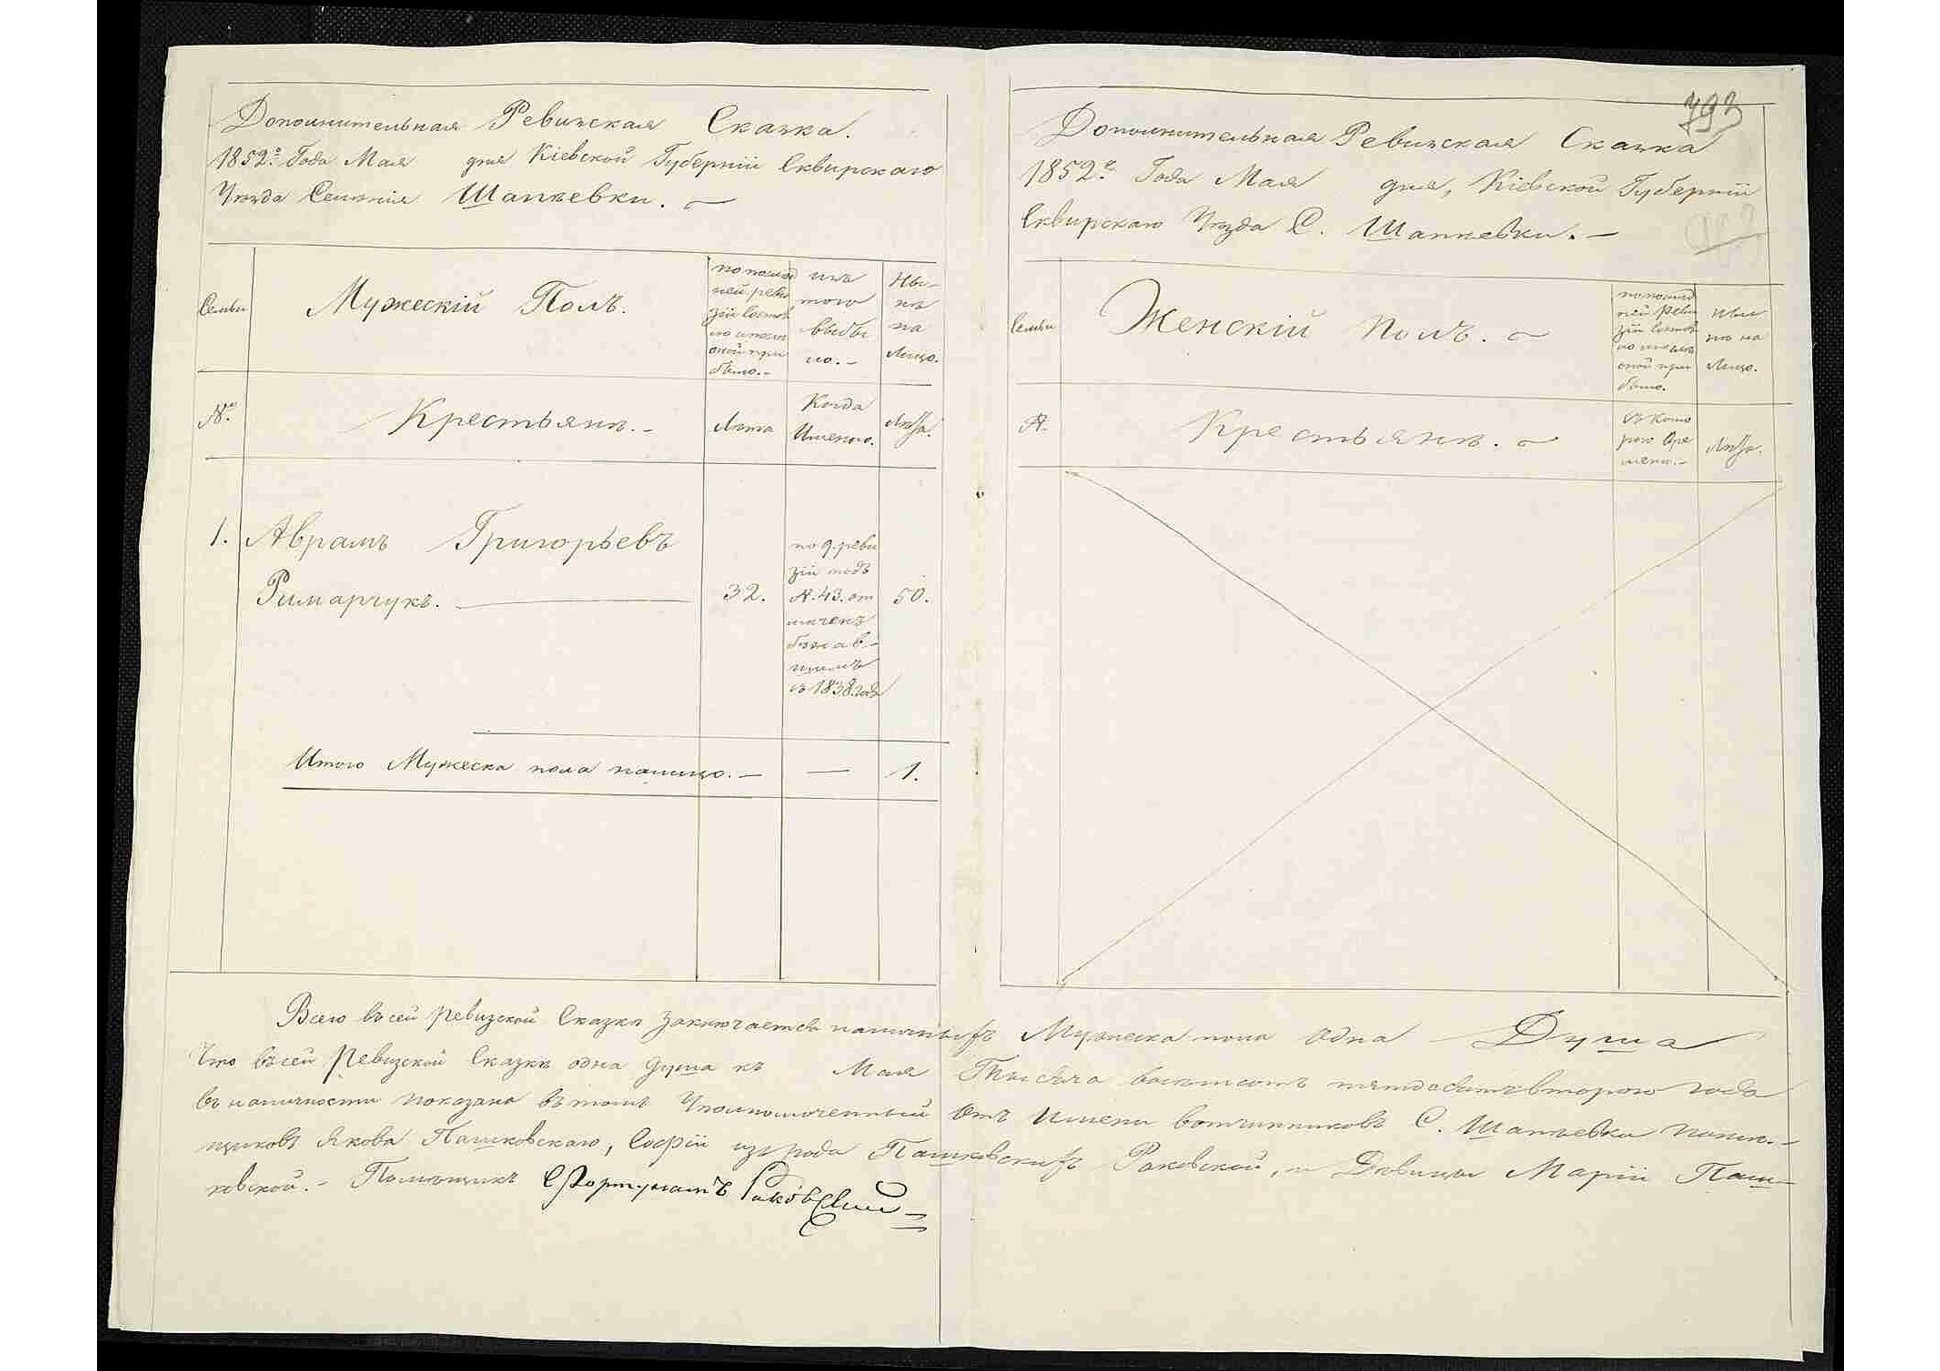 Дополнительная Ревизская Сказка.
1852го Года Мая дня Кіевской Губерніи Сквирскаго
Уѣзда Селенія Шапіевки. —
Семьи
Мужескій Полъ.
по послѣд
ней реви
зіи состоя
ло и послѣ
оной при
было. -
изъ
того
выбы
ло. -
Ны-
нѣ
на
Лицо.
№.
Крестьянъ. -
Лѣта
Когда
Именно.
Лѣта.
1. Аврамъ Григорьевъ
Римарчукъ. — 32.
по 9. реви
зіи подъ
№. 43. от
мѣченъ
бѣжав-
шимъ
въ 1838. годѣ
50.
Итого Мужеска пола налицо. — — 1.
793
Дополнительная Ревизская Сказка
1852го Года Мая дня, Кіевской Губерніи
Сквирскаго Уѣзда С. Шапіевки. —
Семьи
Женскій Полъ. —
по послѣд
ней реви
зіи состоя
ло и послѣ
оной при
было.
Ны
нѣ на
Лицо.
№.
Крестьянъ. —
Съ кото
раго вре
мени. -
Лѣта.
Всего въ сей ревизской Сказкѣ заключается наличныхъ Мужеска пола одна Душа
Что въ сей Ревизской Сказкѣ одна душа къ Мая Тысяча восемьсотъ пятдесятъ втораго года
въ наличности показана въ томъ Уполномоченный отъ Имени вотчинниковъ С. Шапіевки помѣ-
щиковъ Якова Пашковскаго, Софіи изъ рода Пашковскихъ Раковской, и Дѣвицы Маріи Паш-
ковской. - Помѣщикъ Фортунатъ Раковскій